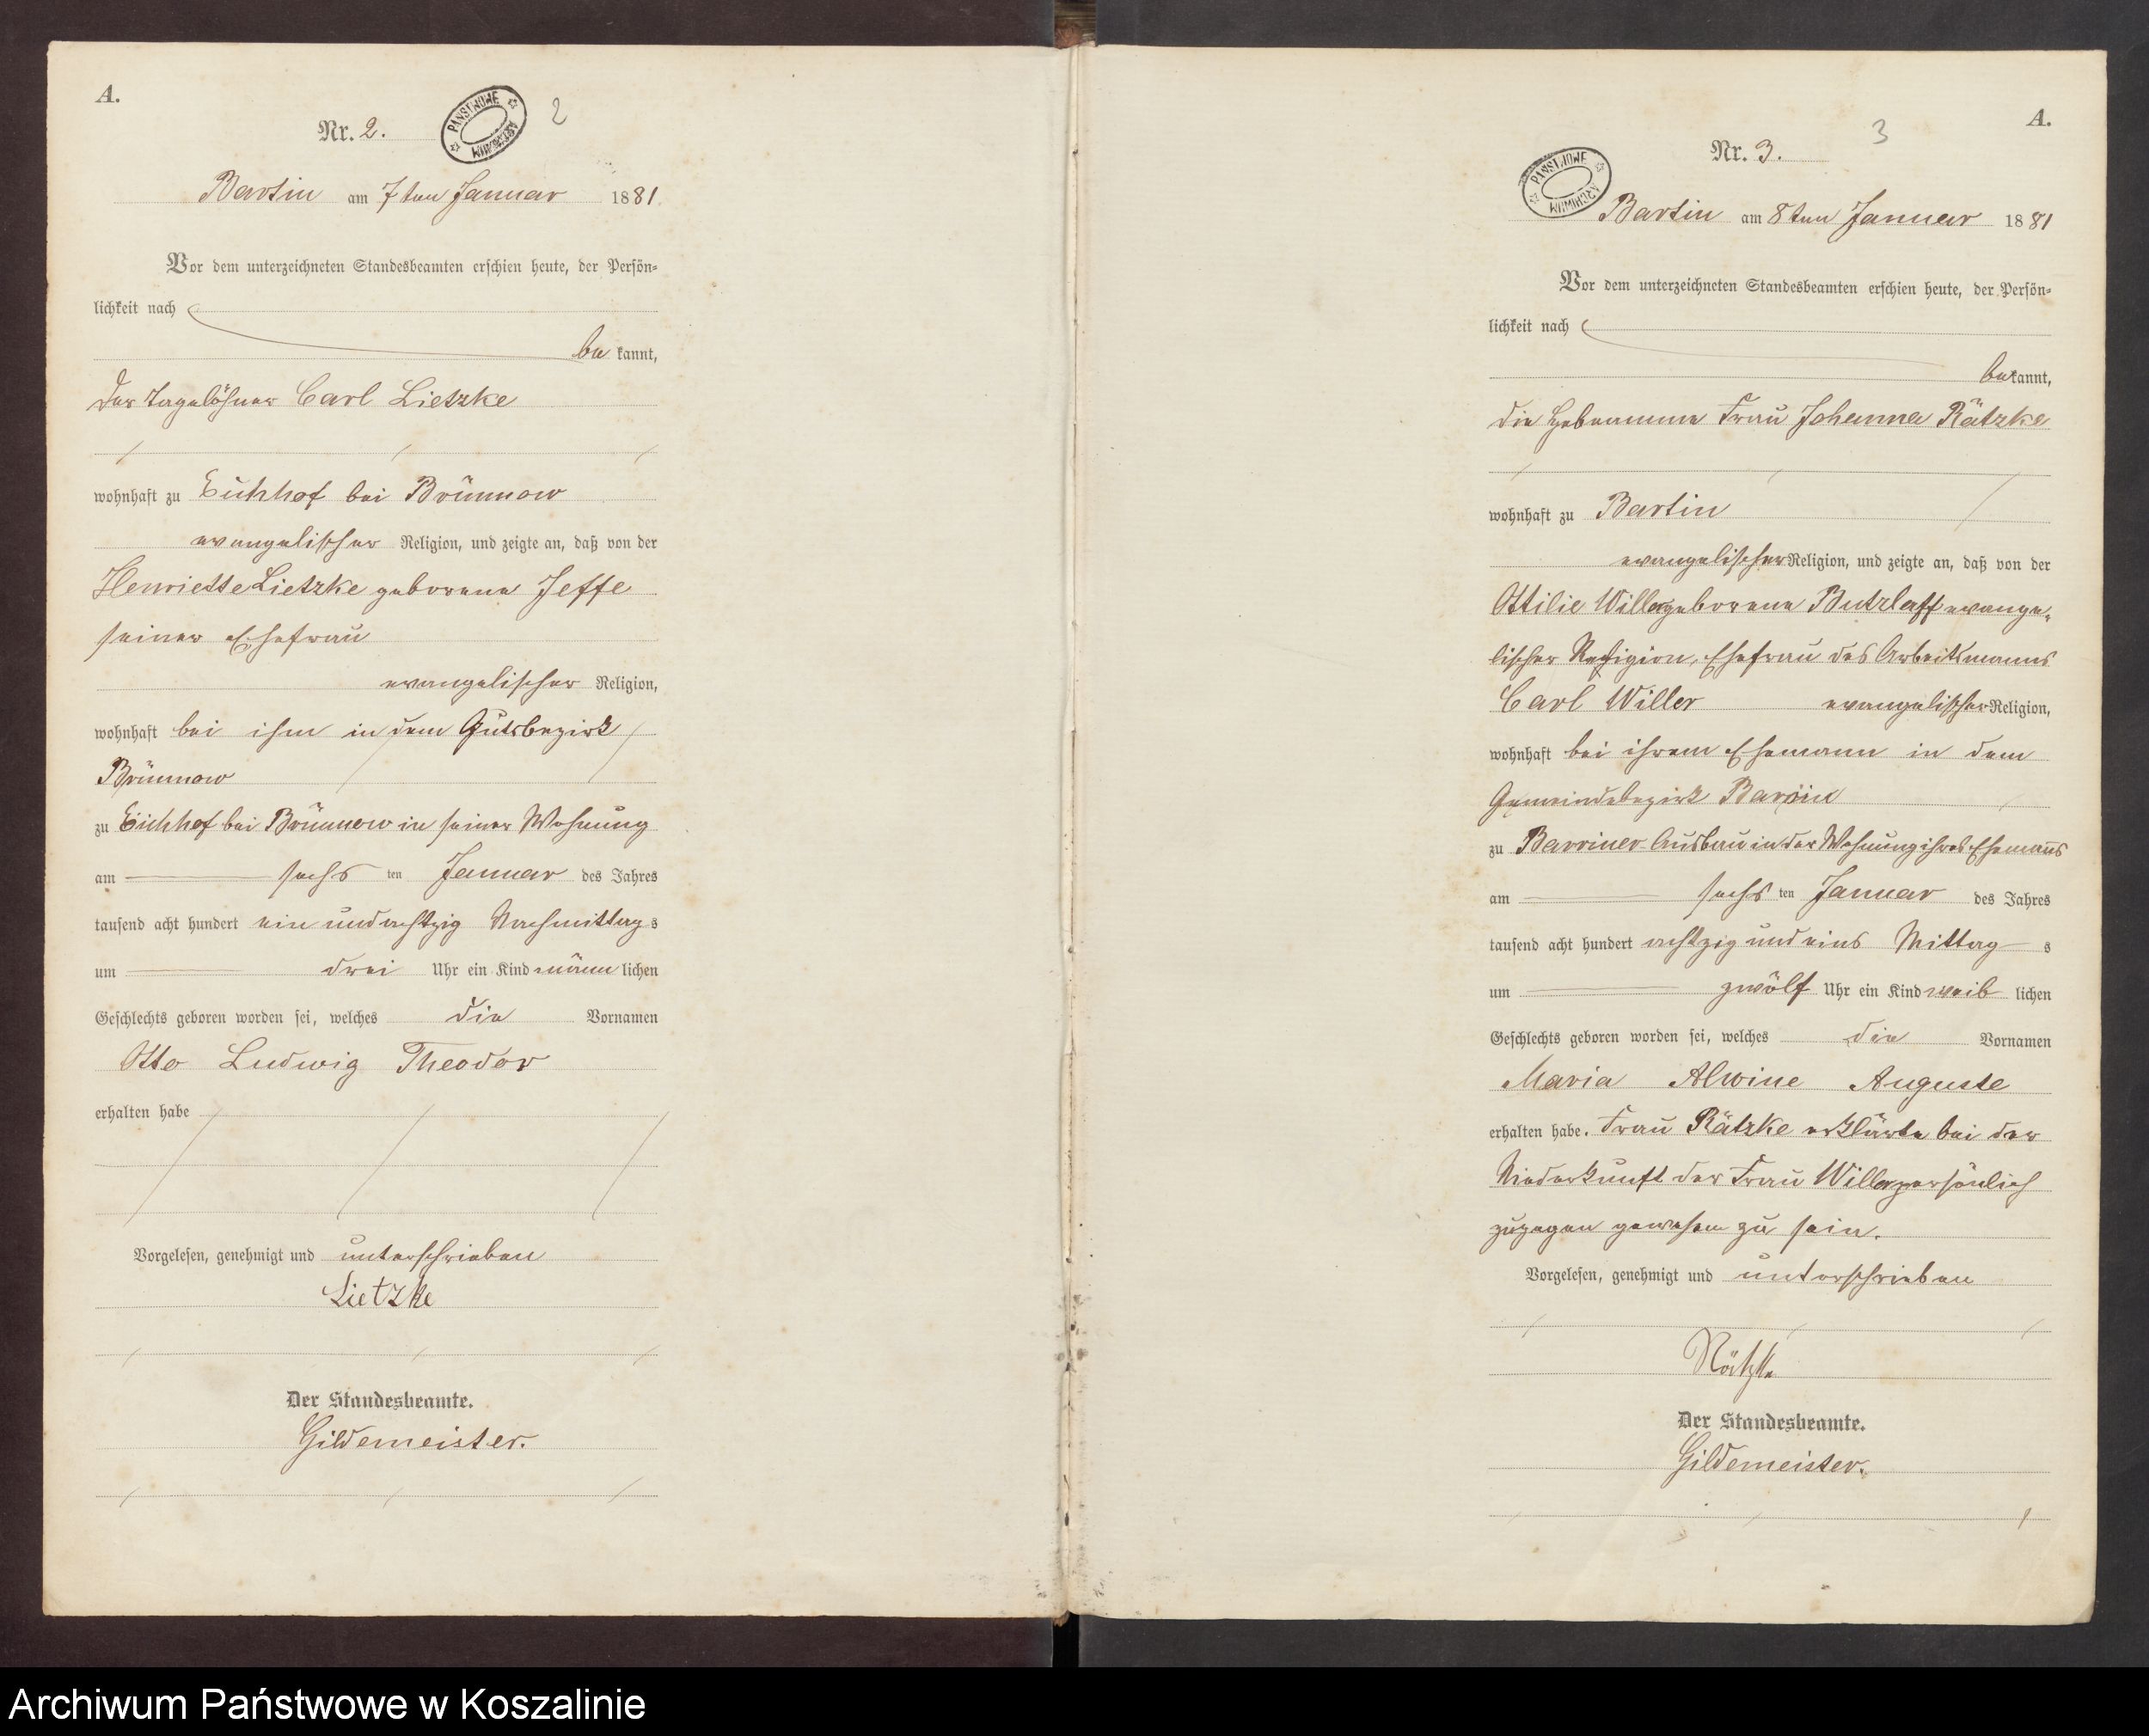 A.
Nr. 2.
PAŃSTWOWE ARCHIWUM
2
Bartin am 7ten Januar 1881.
Vor dem unterzeichneten Standesbeamten erschien heute, der Persön=
lichkeit nach
be kannt,
der Tagelöhner Carl Lietzke
wohnhaft zu Eichhof bei Brünnow
evangelischer Religion, und zeigte an, daß von der
Henriette Lietzke geborene Jeffe
seiner Ehefrau
evangelischer Religion,
wohnhaft bei ihm in dem Gutsbezirk
Brünnow
zu Eichhof bei Brünnow in seiner Wohnung
am sechs ten Januar des Jahres
tausend acht hundert ein und achtzig Nachmittag s
um drei Uhr ein Kind männ lichen
Geschlechts geboren worden sei, welches die Vornamen
Otto Ludwig Theodor
erhalten habe
Vorgelesen, genehmigt und unterschrieben
Lietzke
Der Standesbeamte.
Gildemeister.
A.
3
Nr. 3.
PAŃSTWOWE ARCHIWUM
Bartin am 8ten Januar 1881
Vor dem unterzeichneten Standesbeamten erschien heute, der Persön=
lichkeit nach
bekannt,
die Hebeamme Frau Johanna Rätzke
wohnhaft zu Bartin
evangelischer Religion, und zeigte an, daß von der
Ottilie Willer geborene Butzlaff evange-
lischer Religion, Ehefrau des Arbeitsmanns
Carl Willer evangelischer Religion,
wohnhaft bei ihrem Ehemann in dem
Gemeindebezirk
zu Ausbau in der Wohnung ihres Ehemanns
am sechs ten Januar des Jahres
tausend acht hundert achtzig und eins Mittag s
um zwölf Uhr ein Kind weib lichen
Geschlechts geboren worden sei, welches die Vornamen
Maria Alwine Auguste
erhalten habe. Frau Rätzke erklärte bei der
Niederkunft der Frau Willer persönlich
zugegen gewesen zu sein.
Vorgelesen, genehmigt und unterschrieben
Rätzke
Der Standesbeamte.
Gildemeister.
Archiwum Państwowe w Koszalinie